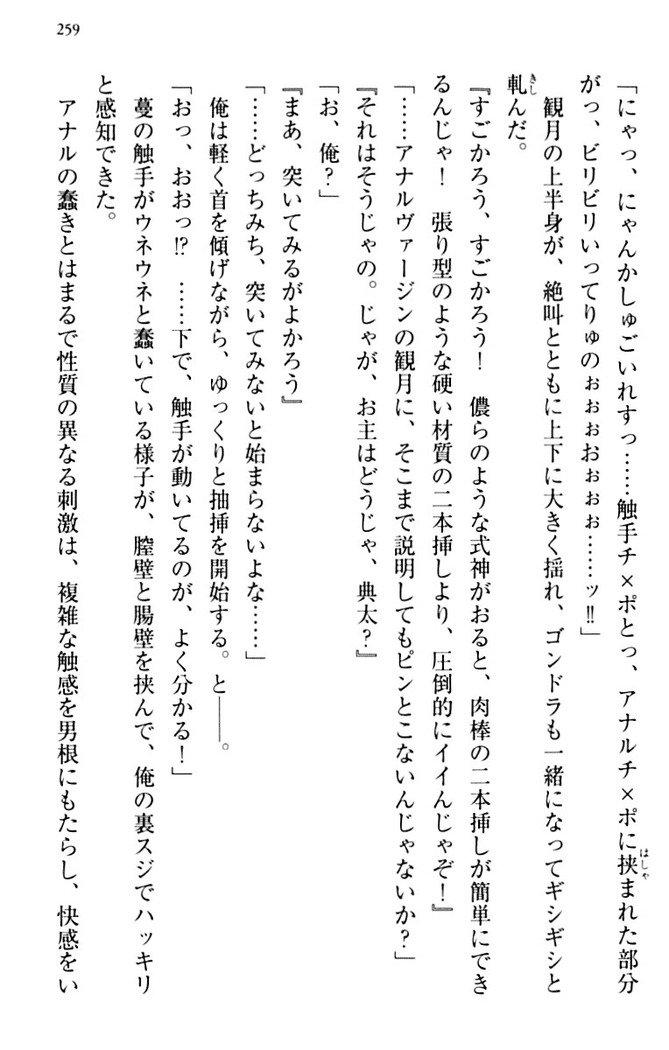 259
「にゃっ、にゃんかしゅごいれすっ……触手チ×ポとっ、アナルチ×ポに挟まれた部分
がっ、ビリビリいってりゅのぉぉぉおぉぉぉ……ッ!!」
観月の上半身が、絶叫とともに上下に大きく揺れ、ゴンドラも一緒になってギシギシと
軋んだ。
『すごかろう、すごかろう！　儂らのような式神がおると、肉棒の二本挿しが簡単にでき
るんじゃ！　張り型のような硬い材質の二本挿しより、圧倒的にイイんじゃぞ！』
「……アナルヴァージンの観月に、そこまで説明してもピンとこないんじゃないか？」
『それはそうじゃの。じゃが、お主はどうじゃ、典太？』
「お、俺？」
『まあ、突いてみるがよかろう』
「……どっちみち、突いてみないと始まらないよな……」
俺は軽く首を傾げながら、ゆっくりと抽挿を開始する。と――。
「おっ、おおっ!?　……下で、触手が動いてるのが、よく分かる！」
蔓の触手がウネウネと蠢いている様子が、膣壁と腸壁を挟んで、俺の裏スジでハッキリ
と感知できた。
アナルの蠢きとはまるで性質の異なる刺激は、複雑な触感を男根にもたらし、快感をい